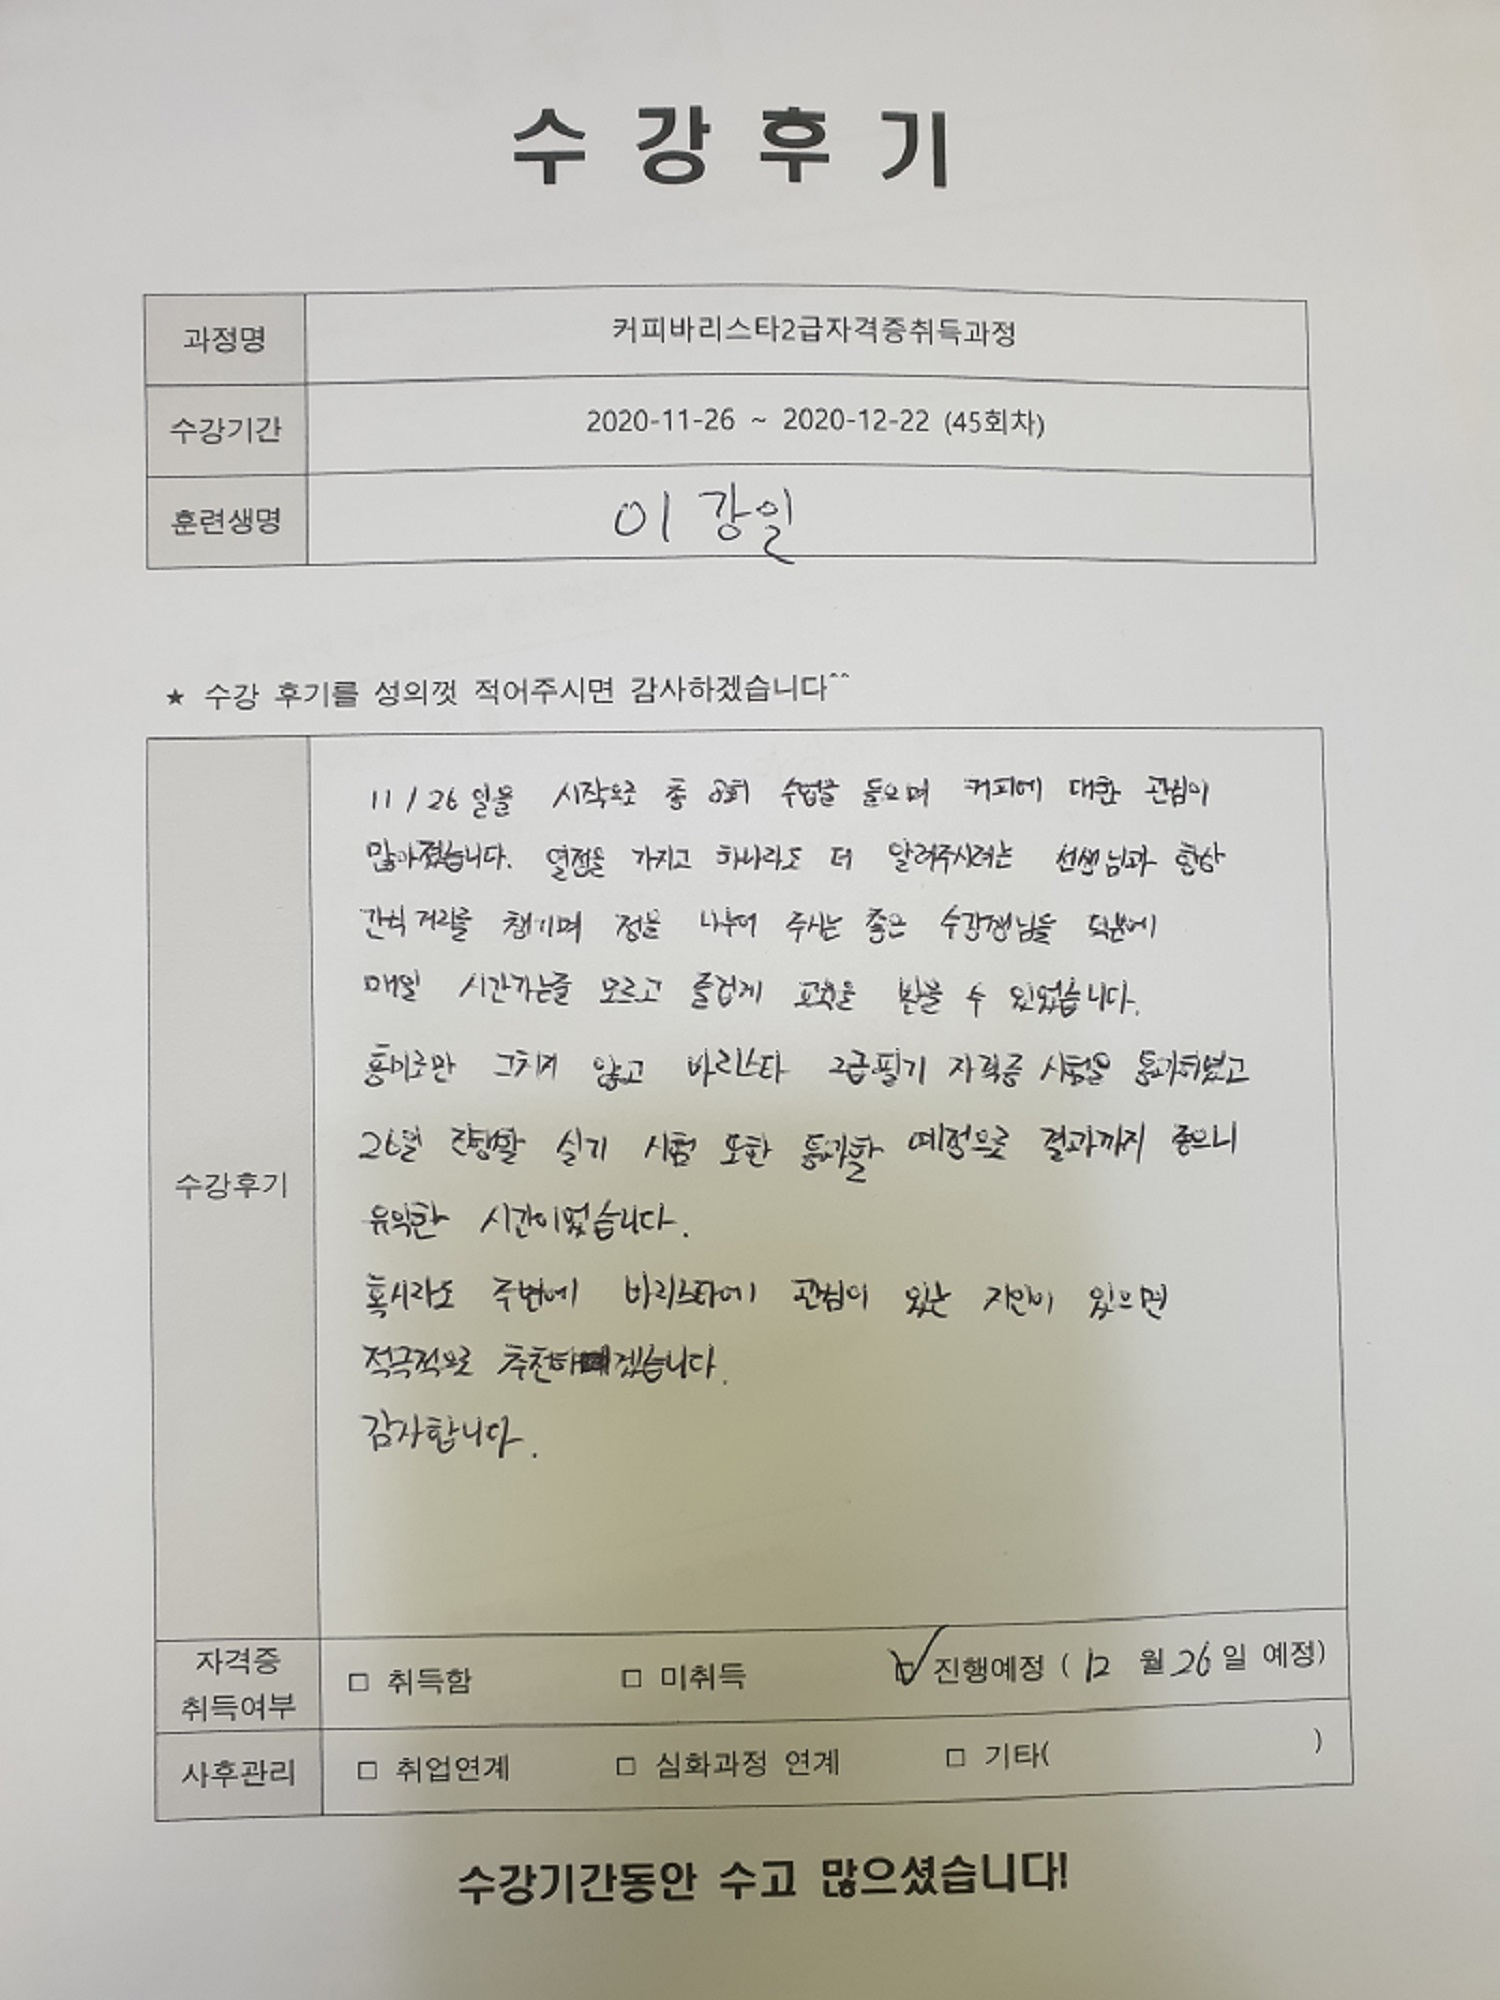 수강후기
과정명 커피바리스타2급자격증취득과정
수강기간 2020-11-26 ~ 2020-12-22 (45회차)
훈련생명 이강일
★ 수강 후기를 성의껏 적어주시면 감사하겠습니다^^
수강후기
11/26일을 시작으로 총 8회 수업을 들으며 커피에 대한 관심이
많아졌습니다. 열정을 가지고 하나라도 더 알려주시려는 선생님과 항상
간식거리를 챙기며 정을 나누어 주시는 좋은 수강생님들 덕분에
매일 시간가는줄 모르고 즐겁게 교육을 받을 수 있었습니다.
흥미로만 그치지 않고 바리스타 2급필기 자격증 시험을 통과하였고
26일 진행할 실기 시험 또한 통과할 예정으로 결과까지 좋으니
유익한 시간이었습니다.
혹시라도 주변에 바리스타에 관심이 있는 지인이 있으면
적극적으로 추천하겠습니다.
감사합니다.
자격증 취득여부 □ 취득함 □ 미취득 ☑ 진행예정 ( 12 월 26 일 예정)
사후관리 □ 취업연계 □ 심화과정 연계 □ 기타( )
수강기간동안 수고 많으셨습니다!